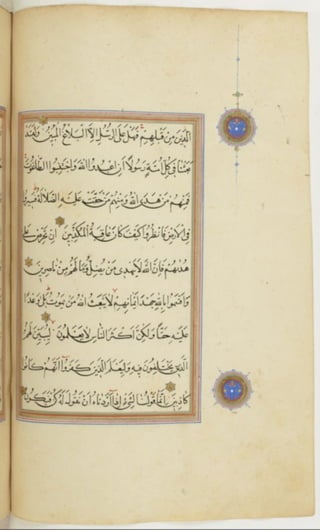 الَّذِينَ مِنْ قَبْلِهِمْ فَهَلْ عَلَى الرُّسُلِ إِلَّا الْبَلَاغُ الْمُبِينُ وَلَقَدْ
بَعَثْنَا فِي كُلِّ أُمَّةٍ رَسُولًا أَنِ اعْبُدُوا اللَّهَ وَاجْتَنِبُوا الطَّاغُوتَ
فَمِنْهُمْ مَنْ هَدَى اللَّهُ وَمِنْهُمْ مَنْ حَقَّتْ عَلَيْهِ الضَّلَالَةُ فَسِيرُوا
فِي الْأَرْضِ فَانْظُرُوا كَيْفَ كَانَ عَاقِبَةُ الْمُكَذِّبِينَ إِنْ تَحْرِصْ عَلَى
هُدَاهُمْ فَإِنَّ اللَّهَ لَا يَهْدِي مَنْ يُضِلُّ وَمَا لَهُمْ مِنْ نَاصِرِينَ
وَأَقْسَمُوا بِاللَّهِ جَهْدَ أَيْمَانِهِمْ لَا يَبْعَثُ اللَّهُ مَنْ يَمُوتُ بَلَى وَعْدًا
عَلَيْهِ حَقًّا وَلَكِنَّ أَكْثَرَ النَّاسِ لَا يَعْلَمُونَ لِيُبَيِّنَ لَهُمُ
الَّذِي يَخْتَلِفُونَ فِيهِ وَلِيَعْلَمَ الَّذِينَ كَفَرُوا أَنَّهُمْ كَانُوا
كَاذِبِينَ إِنَّمَا قَوْلُنَا لِشَيْءٍ إِذَا أَرَدْنَاهُ أَنْ نَقُولَ لَهُ كُنْ فَيَكُونُ